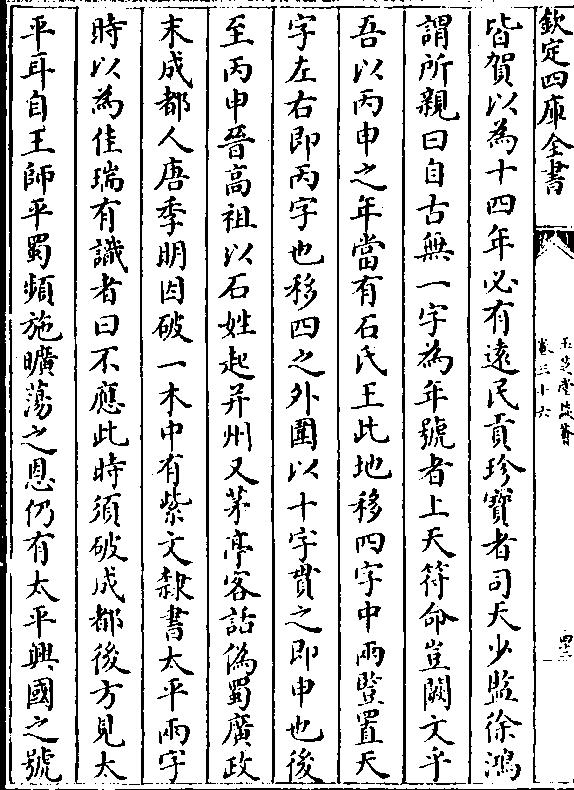 欽定四庫全書
玉芝堂談薈
卷三十六
皆賀以為十四年必有遠民貢珍寶者司天少監徐鴻
謂所親曰自古無一字為年號者上天符命豈闕文乎
吾以丙申之年當有石氏王此地移四字中兩豎置天
字左右即丙字也移四之外圍以十字貫之即申也後
至丙申晉高祖以石姓起并州又茅亭客話偽蜀廣政
末成都人唐季明因破一木中有紫文隸書太平兩字
時以為佳瑞有識者曰不應此時須破成都後方見太
平耳自王師平蜀頻施曠蕩之恩仍有太平興國之號